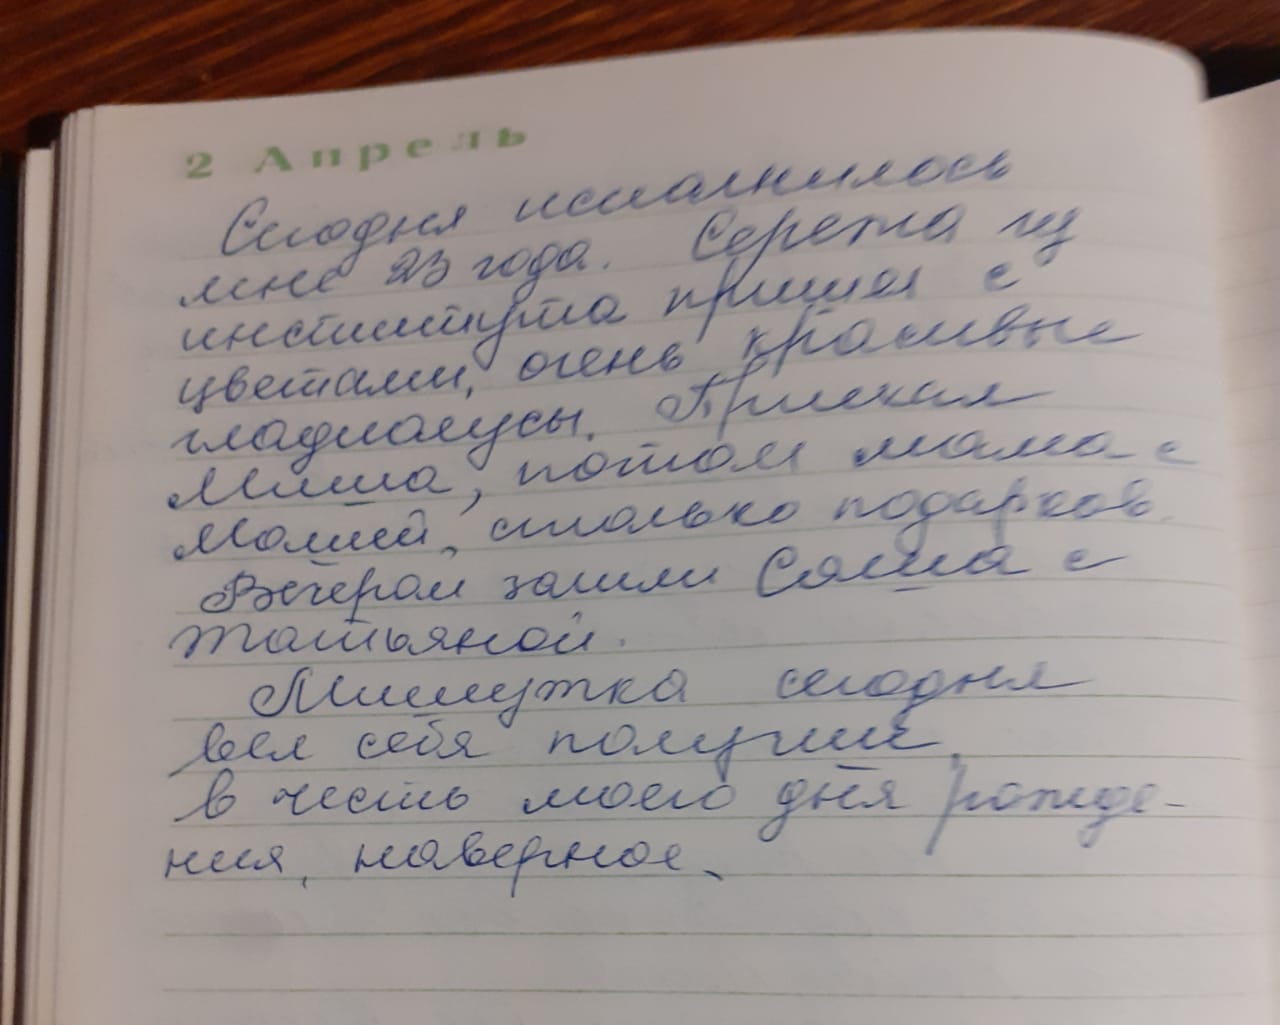 2 Апрель
Сегодня исполнилось
мне 23 года. Сережа из
института пришел с
цветами, очень красивые
гладиолусы. Приехал
Миша, потом мама с
Машей, столько подарков.
Вечером зашли Саша с
Татьяной.
Мишутка сегодня
вел себя получше,
в честь моего дня рожде-
ния, наверное.